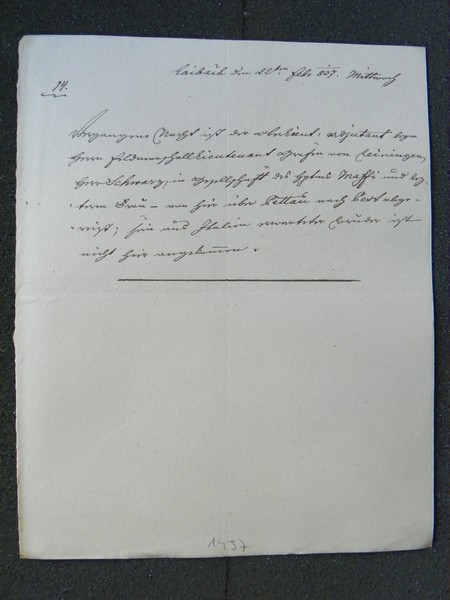 Laibach den 22ten Febr 807. Mittwoch
14.
Vergangene Nacht ist der Oberlieut: Adjutant beym
Herrn Feldmarschallieutenant Grafen von Leiningen,
Herr Schwarz, in Gesellschaft des Hptms Maffei und
Frau – von hier über Pettau nach Pest abge-
reist; sein aus Italien erwarteter Bruder ist
nicht hier angekommen.
1497